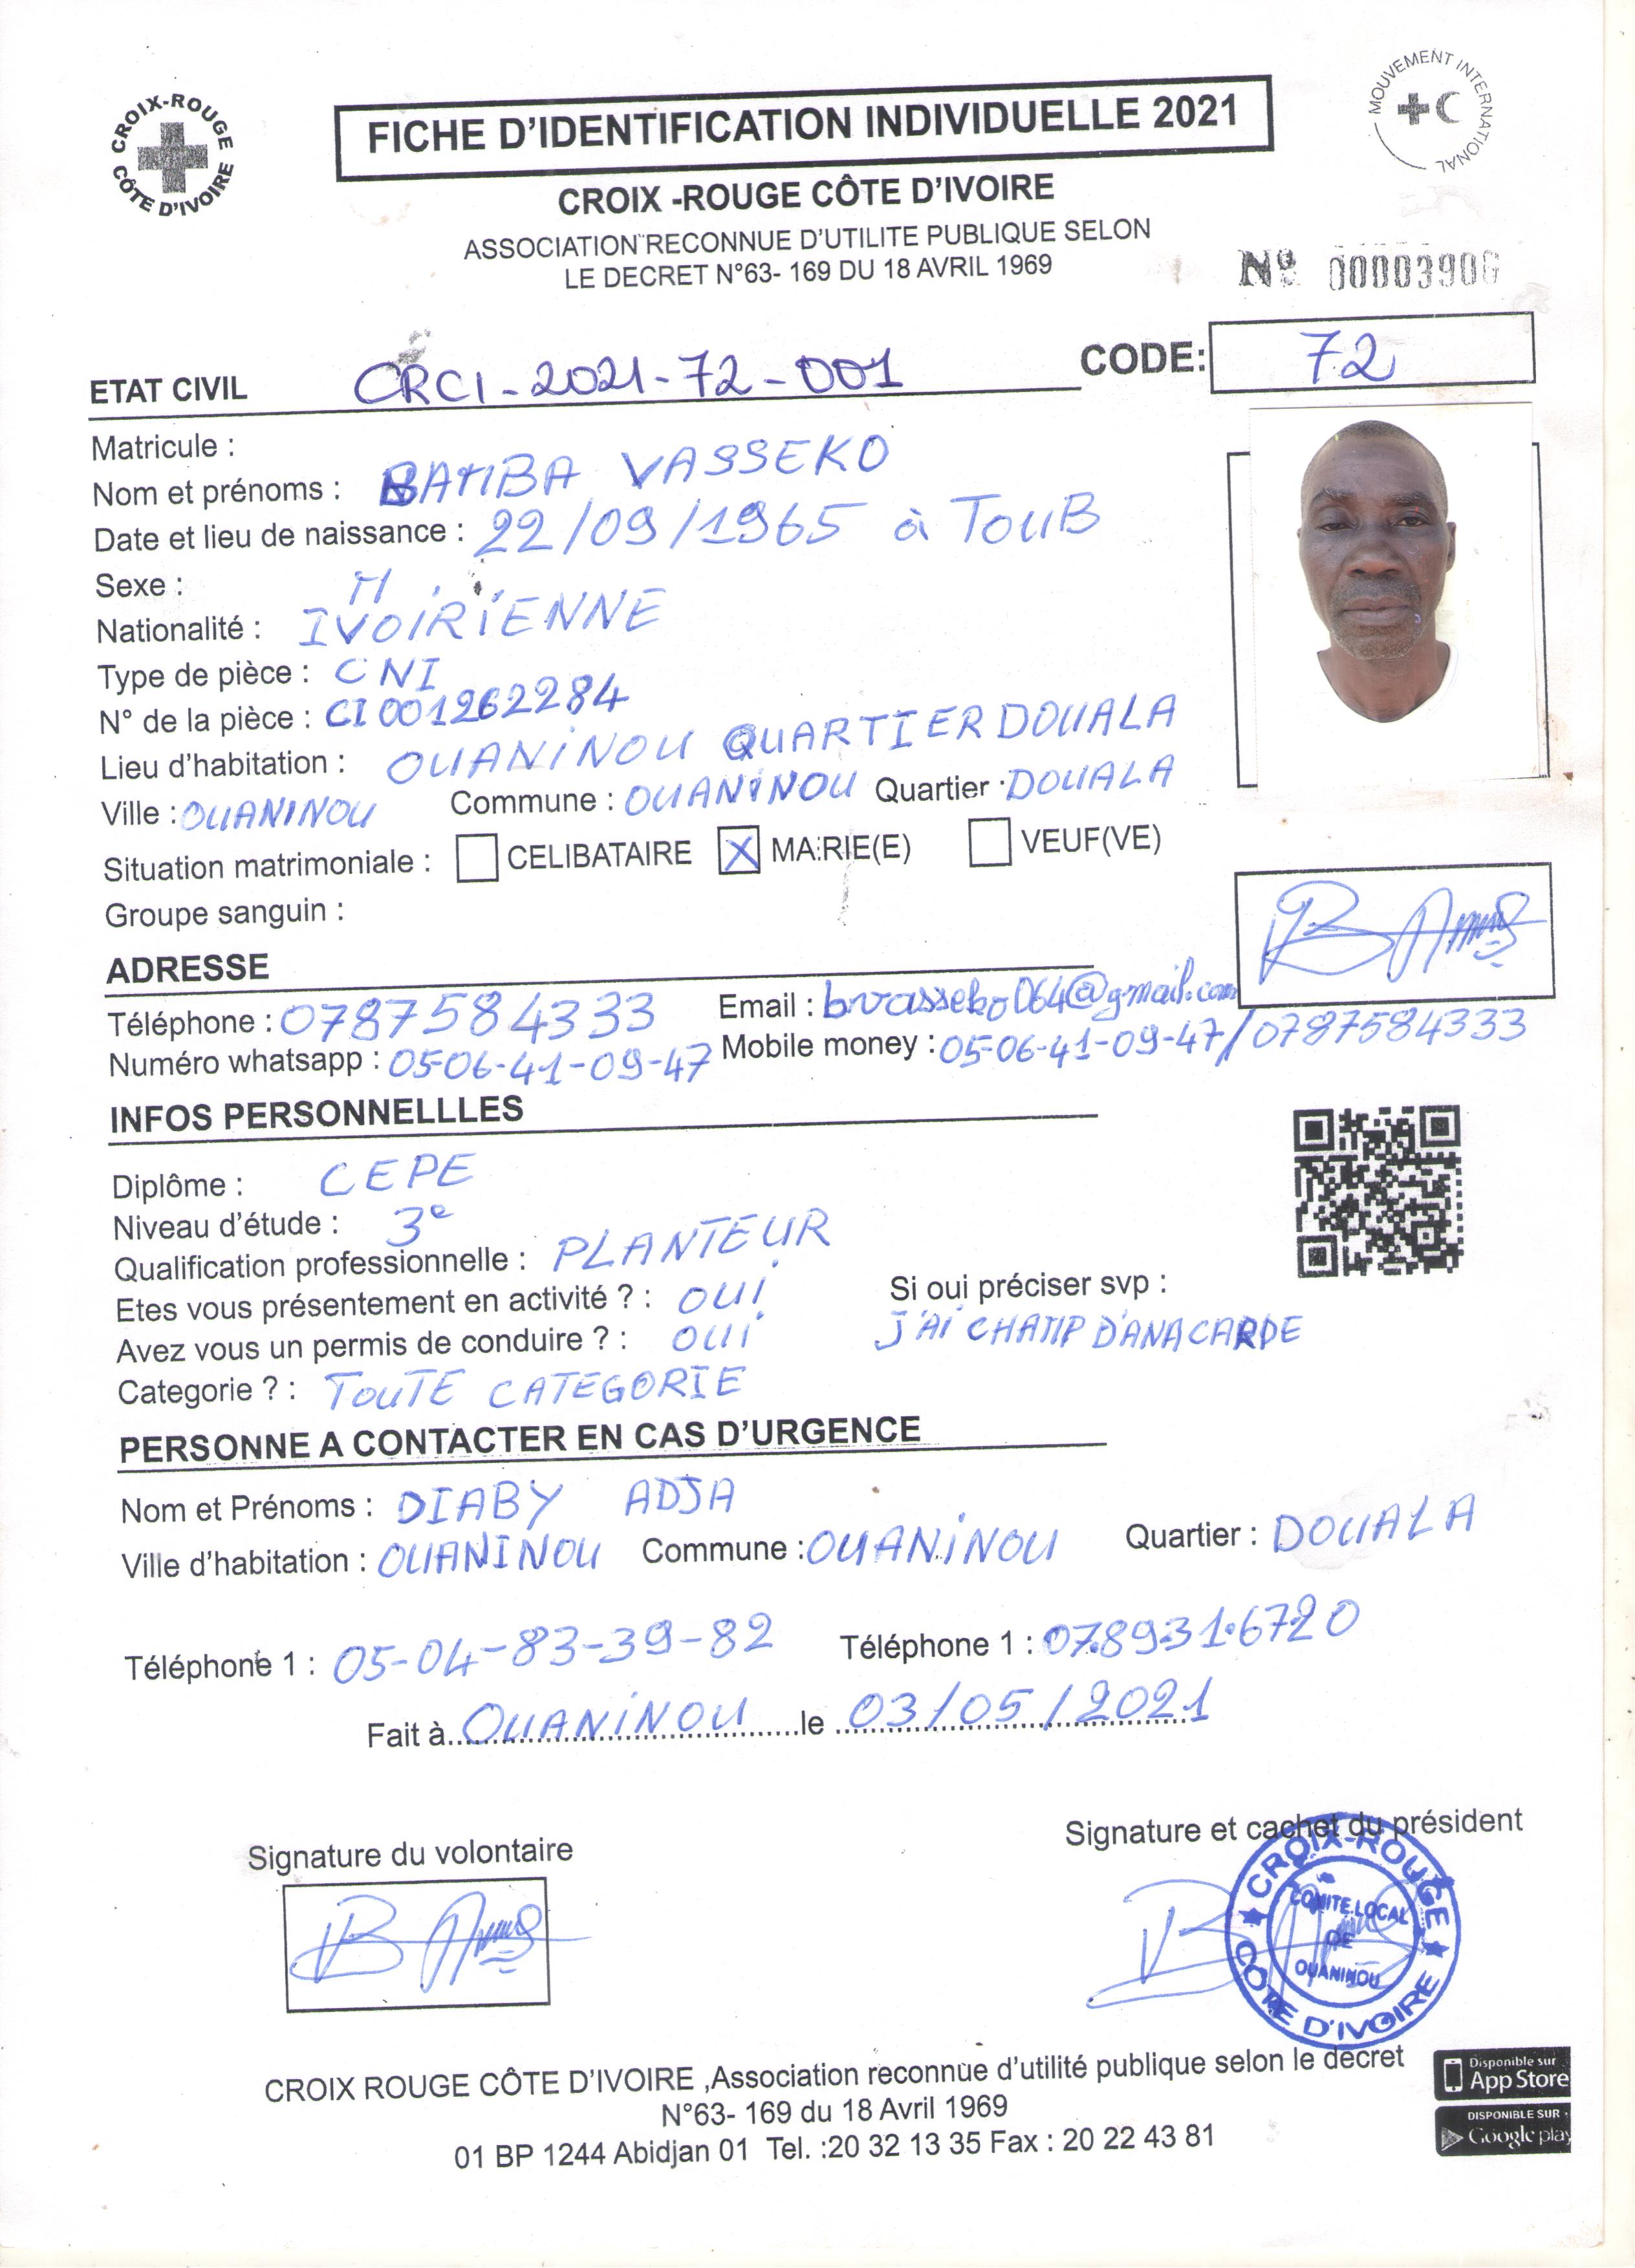 CROIX-ROUGE CÔTE D'IVOIRE
MOUVEMENT INTERNATIONAL
FICHE D'IDENTIFICATION INDIVIDUELLE 2021
CROIX -ROUGE CÔTE D'IVOIRE
ASSOCIATION RECONNUE D'UTILITE PUBLIQUE SELON
LE DECRET N°63- 169 DU 18 AVRIL 1969
Nº 00003906
ETAT CIVIL CRCI-2021-72-001 CODE: 72
Matricule :
Nom et prénoms : BAMBA VASSEKO
Date et lieu de naissance : 22/09/1965 à TOUB
Sexe : M
Nationalité : IVOIRIENNE
Type de pièce : CNI
N° de la pièce : CI001262284
Lieu d'habitation : OUANINOU QUARTIER DOUALA
Ville : OUANINOU Commune : OUANINOU Quartier : DOUALA
Situation matrimoniale : CELIBATAIRE X MARIE(E) VEUF(VE)
Groupe sanguin :
ADRESSE
Téléphone : 0787584333 Email : bvasseko064@gmail.com
Numéro whatsapp : 0506-41-09-47 Mobile money : 05-06-41-09-47/0787584333
INFOS PERSONNELLLES
Diplôme : CEPE
Niveau d'étude : 3e
Qualification professionnelle : PLANTEUR
Etes vous présentement en activité ? : OUI Si oui préciser svp :
Avez vous un permis de conduire ? : OUI J'AI CHAMP D'ANACARDE
Categorie ? : TOUTE CATEGORIE
PERSONNE A CONTACTER EN CAS D'URGENCE
Nom et Prénoms : DIABY ADJA
Ville d'habitation : OUANINOU Commune : OUANINOU Quartier : DOUALA
Téléphone 1 : 05-04-83-39-82 Téléphone 1 : 0789316720
Fait à OUANINOU le 03/05/2021
Signature du volontaire Signature et cachet du président
CROIX-ROUGE
COMITE LOCAL
DE
OUANINOU
COTE D'IVOIRE
CROIX ROUGE CÔTE D'IVOIRE ,Association reconnue d'utilité publique selon le décret
N°63- 169 du 18 Avril 1969
01 BP 1244 Abidjan 01 Tel. :20 32 13 35 Fax : 20 22 43 81
Disponible sur
App Store
DISPONIBLE SUR
Google play